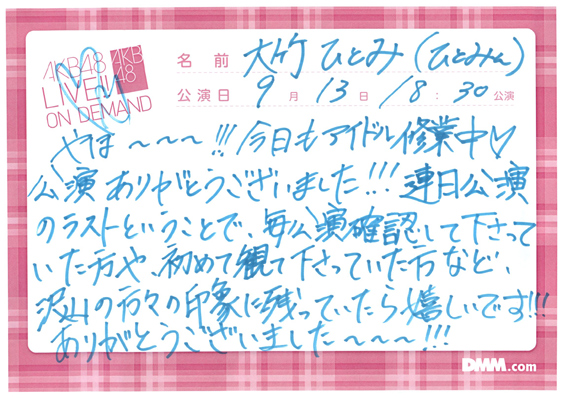 AKB48
LIVE!!
ON DEMAND
AKB
48
名前 大竹 ひとみ (ひとみん)
公演日 9月 13日 18:30 公演
やほ～～～!!! 今日もアイドル修業中♡
公演ありがとうございました!!! 連日公演
のラストということで、毎公演確認して下さって
いた方や、初めて観て下さっていた方など、
沢山の方々の印象に残っていたら嬉しいです!!!
ありがとうございました～～～!!!
DMM.com